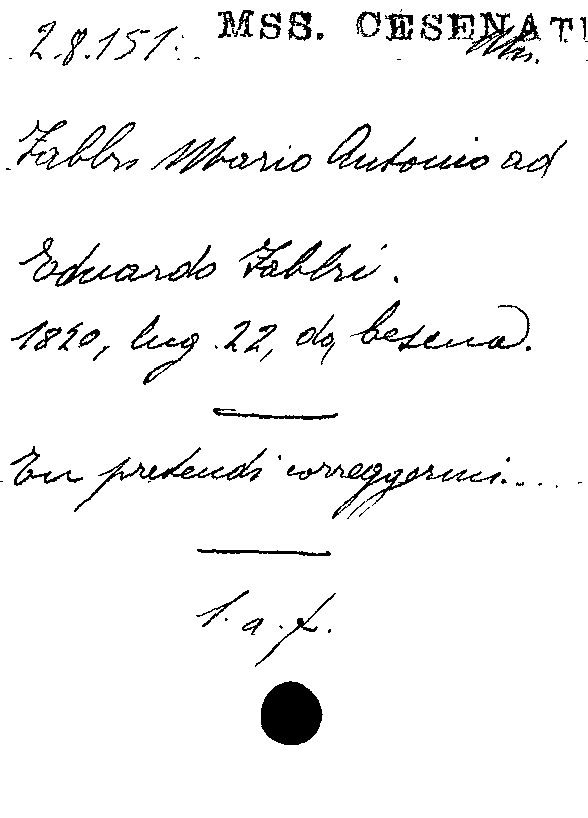 MSS. CESENATI
2.8.151.
Fabbri Mario Antonio ad
Eduardo Fabbri.
1820, lug. 22, da Cesena.
Tu pretendi correggermi....
1. a. f.